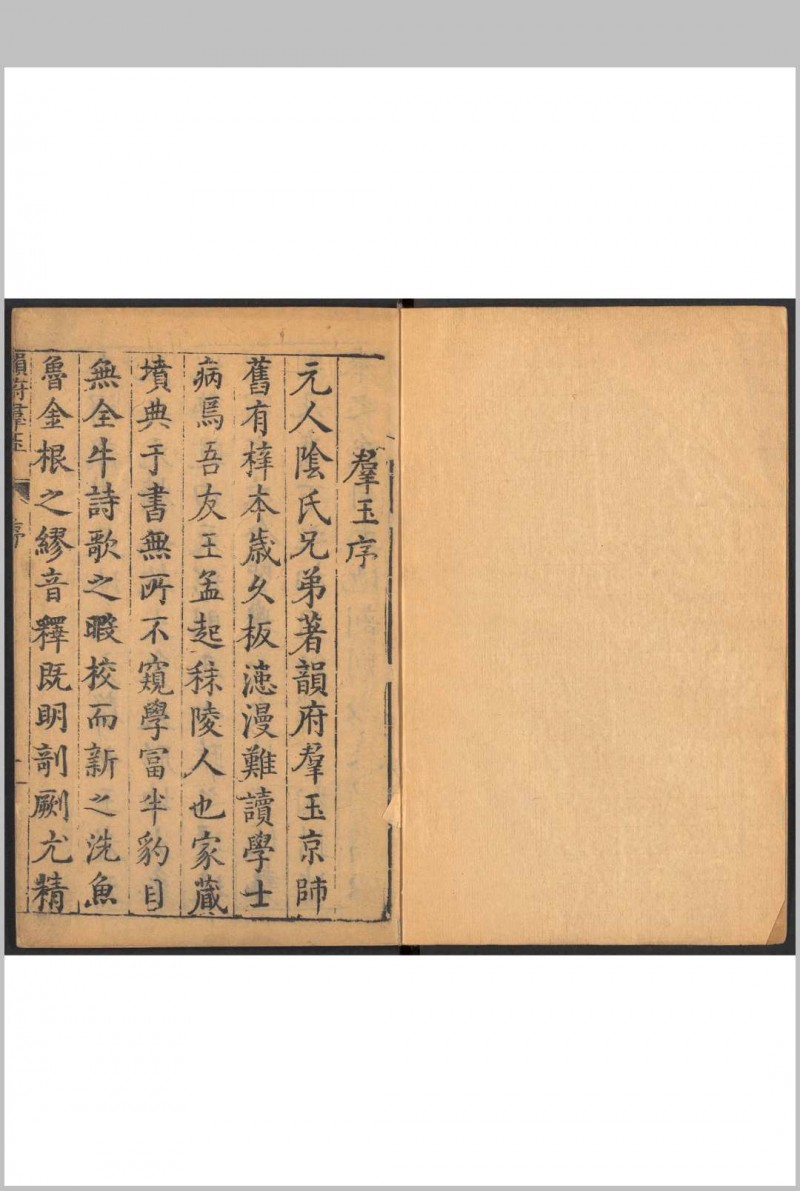 羣玉序
元人陰氏兄弟著韻府羣玉京師
舊有梓本歲久板漶漫難讀學士
病焉吾友王孟起秣陵人也家藏
墳典于書無所不窺學冨半豹目
無全牛詩歌之暇校而新之洗魚
魯金根之繆音釋既明剞劂尤精
韻府羣玉 序